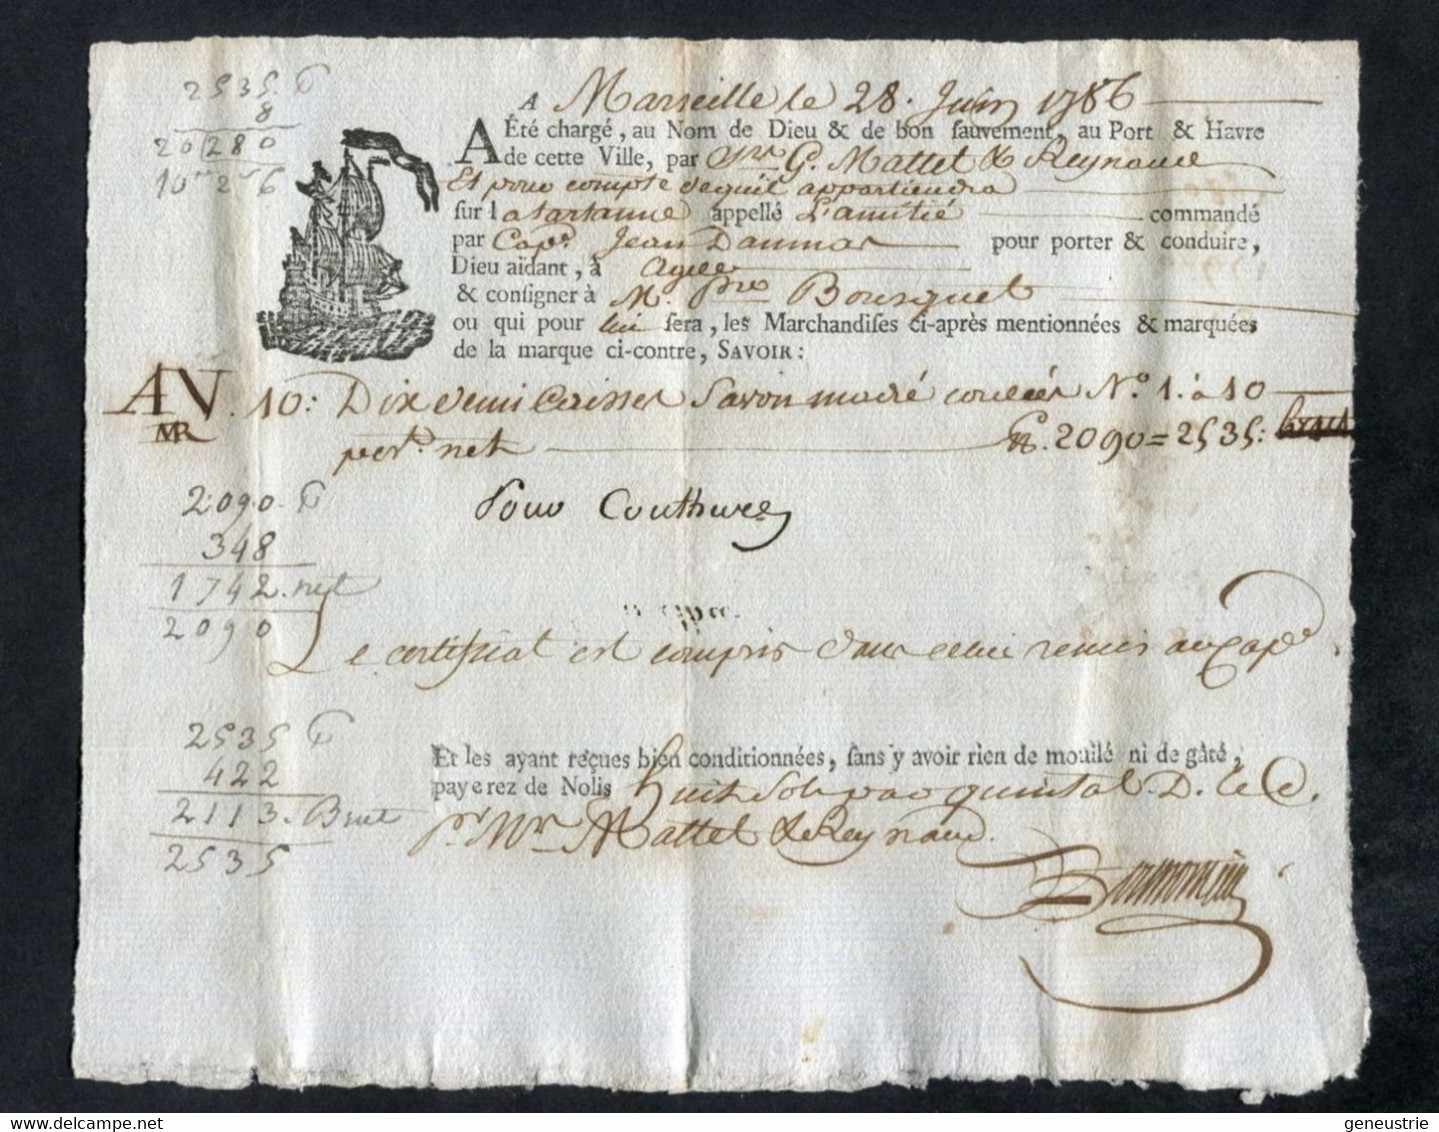 2535 ₶
8
20280
10 ₶ 2 s 6
A Marseille le 28. Juin 1786
A Été chargé, au Nom de Dieu & de bon sauvement, au Port & Havre
de cette Ville, par Srs G. Mattet & Reynaud
Et pour compte de qui il appartiendra
sur la tartanne appellé L'amitié commandé
par Cape. Jean Daumas pour porter & conduire,
Dieu aidant, à Agde
& consigner à M. Pre Bousquet
ou qui pour lui sera, les Marchandises ci-après mentionnées & marquées
de la marque ci-contre, SAVOIR:
AV. 10: Dix demi Caisses Savon madré coulées N°. 1. à 10
MR
net 2090 = 2535:
2090. ₶
348
1742. net
2090
Pour
Le certificat est compris dans celui remis au Cape
2535 ₶
422
2113. Brut
2535
Et les ayant reçues bien conditionnées, sans y avoir rien de mouilé ni de gâté,
payerez de Nolis huit sols par quintal. D.
pr. Mrs Mattet & Reynaud.
geneustrie